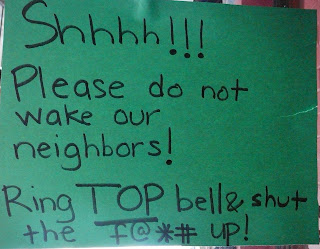 Shhhh!!!
Please do not
wake our
neighbors!
Ring TOP bell & shut
the f@*# up!